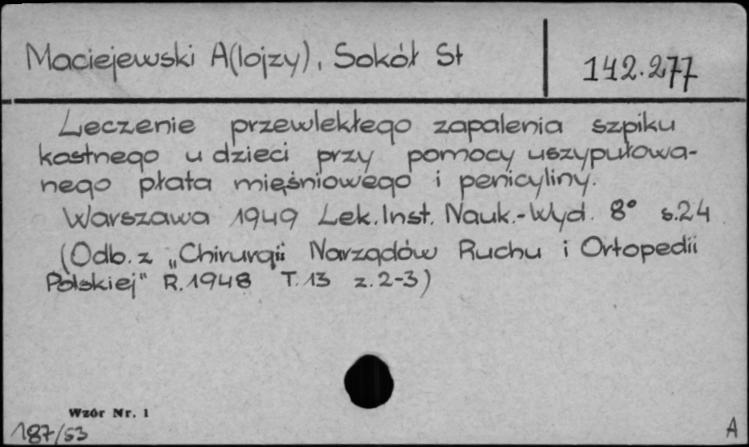 Maciejewski A(lojzy), Sokół St
142.277
Leczenie przewlekłego zapalenia szpiku
kostnego u dzieci przy pomocy uszypułowa-
nego płata mięśniowego i penicyliny.
Warszawa 1949 Lek. Inst. Nauk.-Wyd. 8° s.24
(Odb. z „Chirurgii Narządów Ruchu i Ortopedii
Polskiej" R.1948 T.13 z.2-3)
Wzór Nr. 1
187/53
A